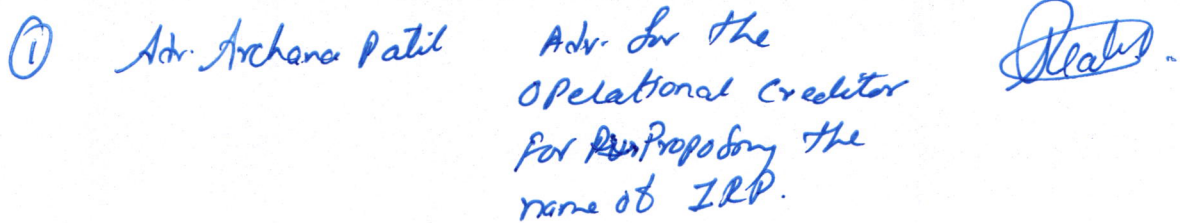 ① Adv. Archana Patil Adv. for the
Operational Creditor
For Proposing the
name of IRP.